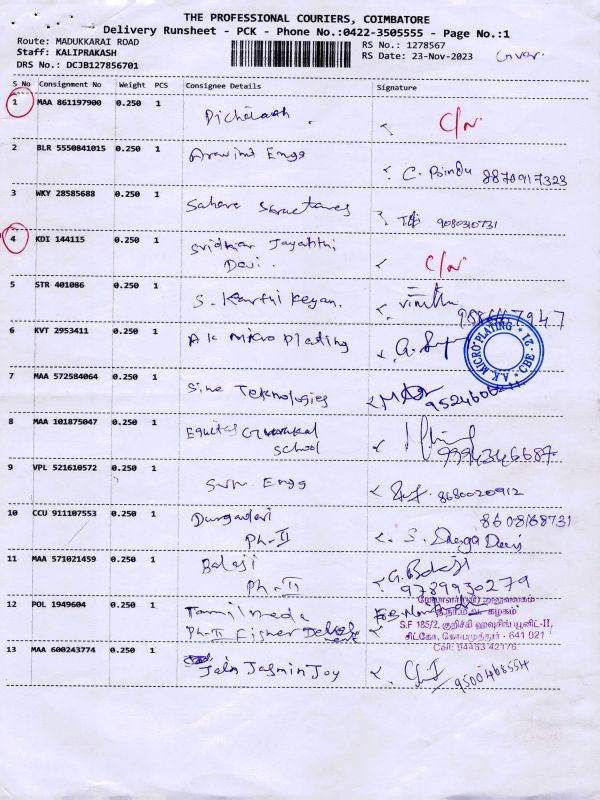 THE PROFESSIONAL COURIERS, COIMBATORE
Delivery Runsheet - PCK - Phone No.:0422-3505555 - Page No.:1
Route: MADUKKARAI ROAD
Staff: KALIPRAKASH
DRS No.: DCJB127856701
RS No.: 1278567
RS Date: 23-Nov-2023
S No Consignment No Weight PCS Consignee Details Signature
1 MAA 861197900 0.250 1 C/N.
2 BLR 5550841015 0.250 1 Aravint Engg C. Poindu 8870917323
3 WKY 28585688 0.250 1 9080310731
4 KDI 144115 0.250 1 Sridhar Jayanthi
Devi. C/N.
5 STR 401086 0.250 1 S. Karthi Keyan.
6 KVT 2953411 0.250 1 A K Micro Plating
A.K. MICRO PLATING CBE - 21
7 MAA 572584064 0.250 1 Sine Teknologies
8 MAA 101875047 0.250 1 Equitas Gurukul
School 9994346687
9 VPL 521610572 0.250 1 Engg 8680020912
10 CCU 911107553 0.250 1 Durgadevi 8608168731
Ph-II S. Durga Devi
11 MAA 571021459 0.250 1 Balaji G. Balaji
Ph-II 9789930279
12 POL 1949604 0.250 1 Tamil
Ph-II Fisher
S.F 185/2, குறிச்சி ஹவுசிங் யூனிட்-II,
சிட்கோ, கோயமுத்தூர் - 641 021
Cell: 94453 42176
13 MAA 600243774 0.250 1 Jain Jasmin Joy 9500468554